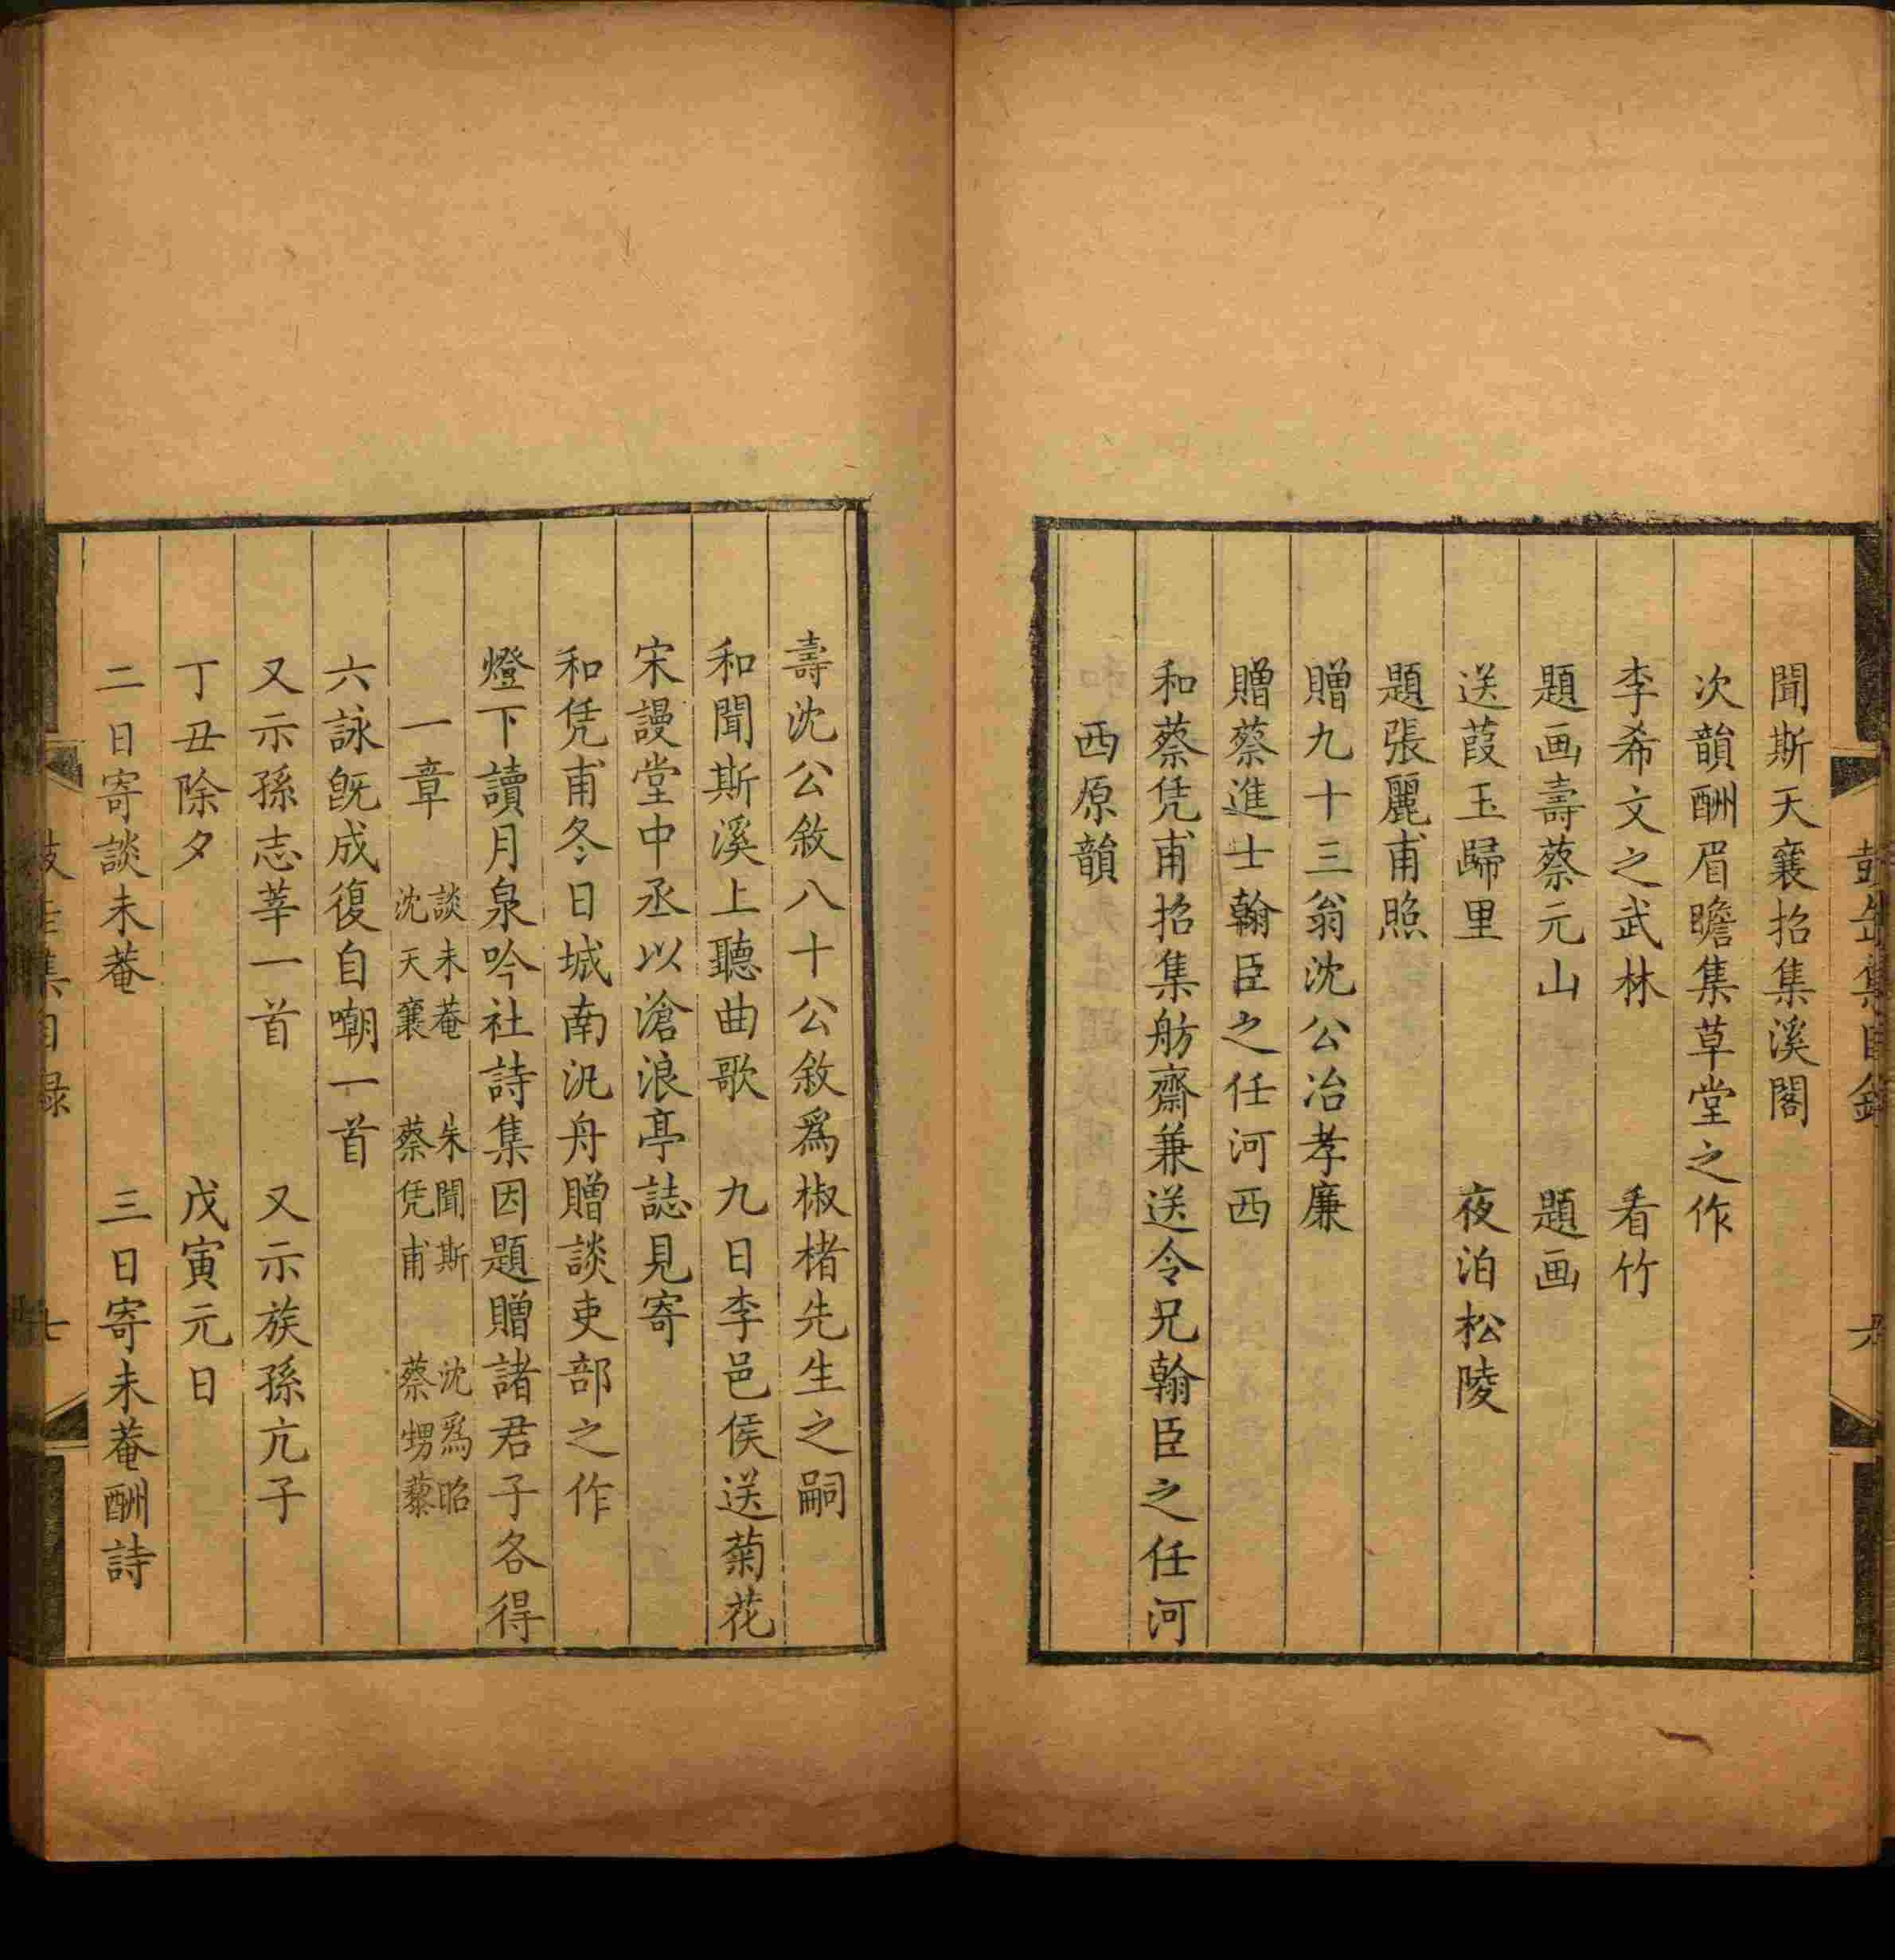 聞斯天襄招集溪閣
次韻酬眉瞻集草堂之作
李希文之武林　看竹
題画壽蔡元山　題画
送葭玉歸里　夜泊松陵
題張麗甫照
贈九十三翁沈公冶孝廉
贈蔡進士翰臣之任河西
和蔡凭甫招集舫齋兼送令兄翰臣之任河
西原韻
壽沈公敘八十公敘爲椒楮先生之嗣
和聞斯溪上聽曲歌　九日李邑侯送菊花
宋謾堂中丞以滄浪亭誌見寄
和凭甫冬日城南汎舟贈談吏部之作
燈下讀月泉吟社詩集因題贈諸君子各得
一章　談未菴　朱聞斯　沈爲昭
沈天襄　蔡凭甫　蔡甥藜
六詠旣成復自嘲一首
又示孫志莘一首　又示族孫亢子
丁丑除夕　戊寅元日
二日寄談未菴　三日寄未菴酬詩
集目録